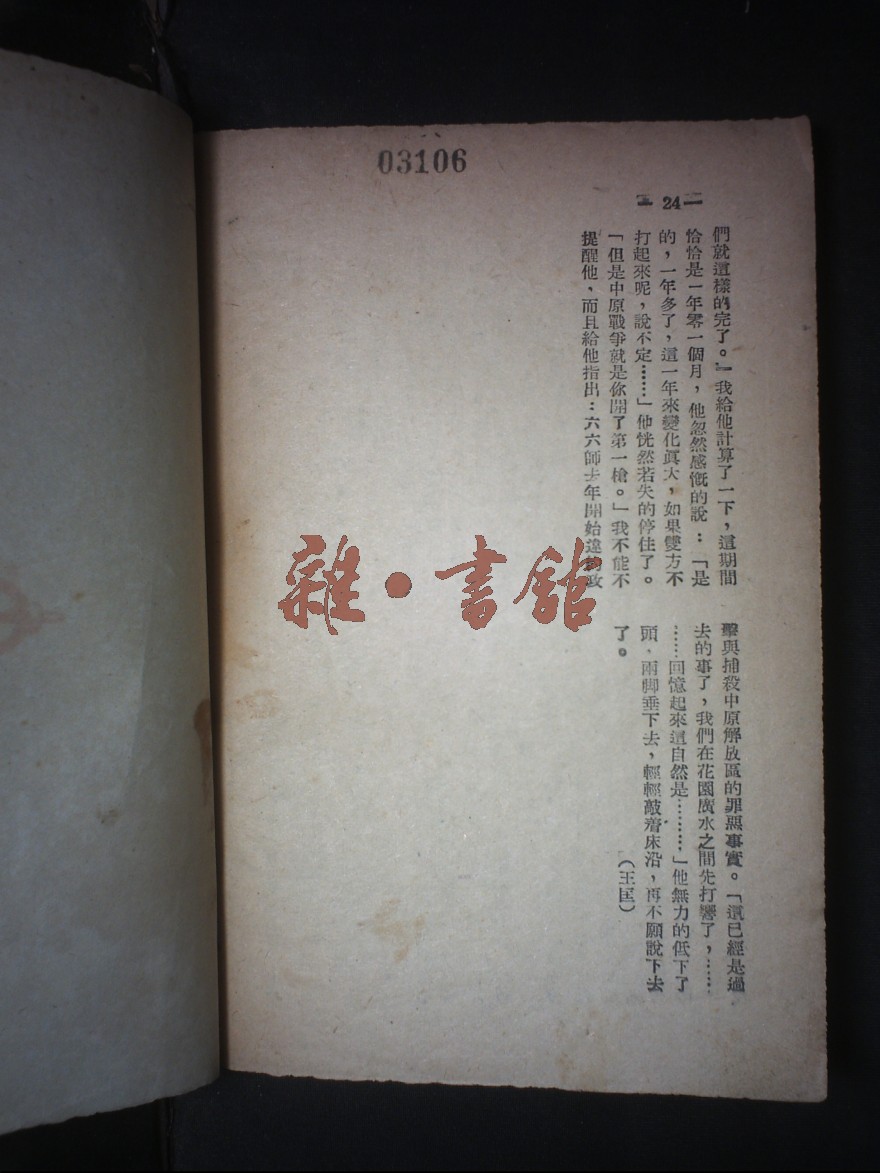 03106
— 24 —
們就這樣的完了。」我給他計算了一下，這期間
恰恰是一年零一個月，他忽然感慨的說：「是
的，一年多了，這一年來變化眞大，如果雙方不
打起來呢，說不定……」他恍然若失的停住了。
「但是中原戰爭就是你開了第一槍。」我不能不
提醒他，而且給他指出：六六師去年開始違約攻
擊與捕殺中原解放區的罪惡事實。「這已經是過
去的事了，我們在花園廣水之間先打響了，……
……回憶起來這自然是………，」他無力的低下了
頭，兩脚垂下去，輕輕敲着床沿，再不願說下去
了。
（王匡）
雜·書館